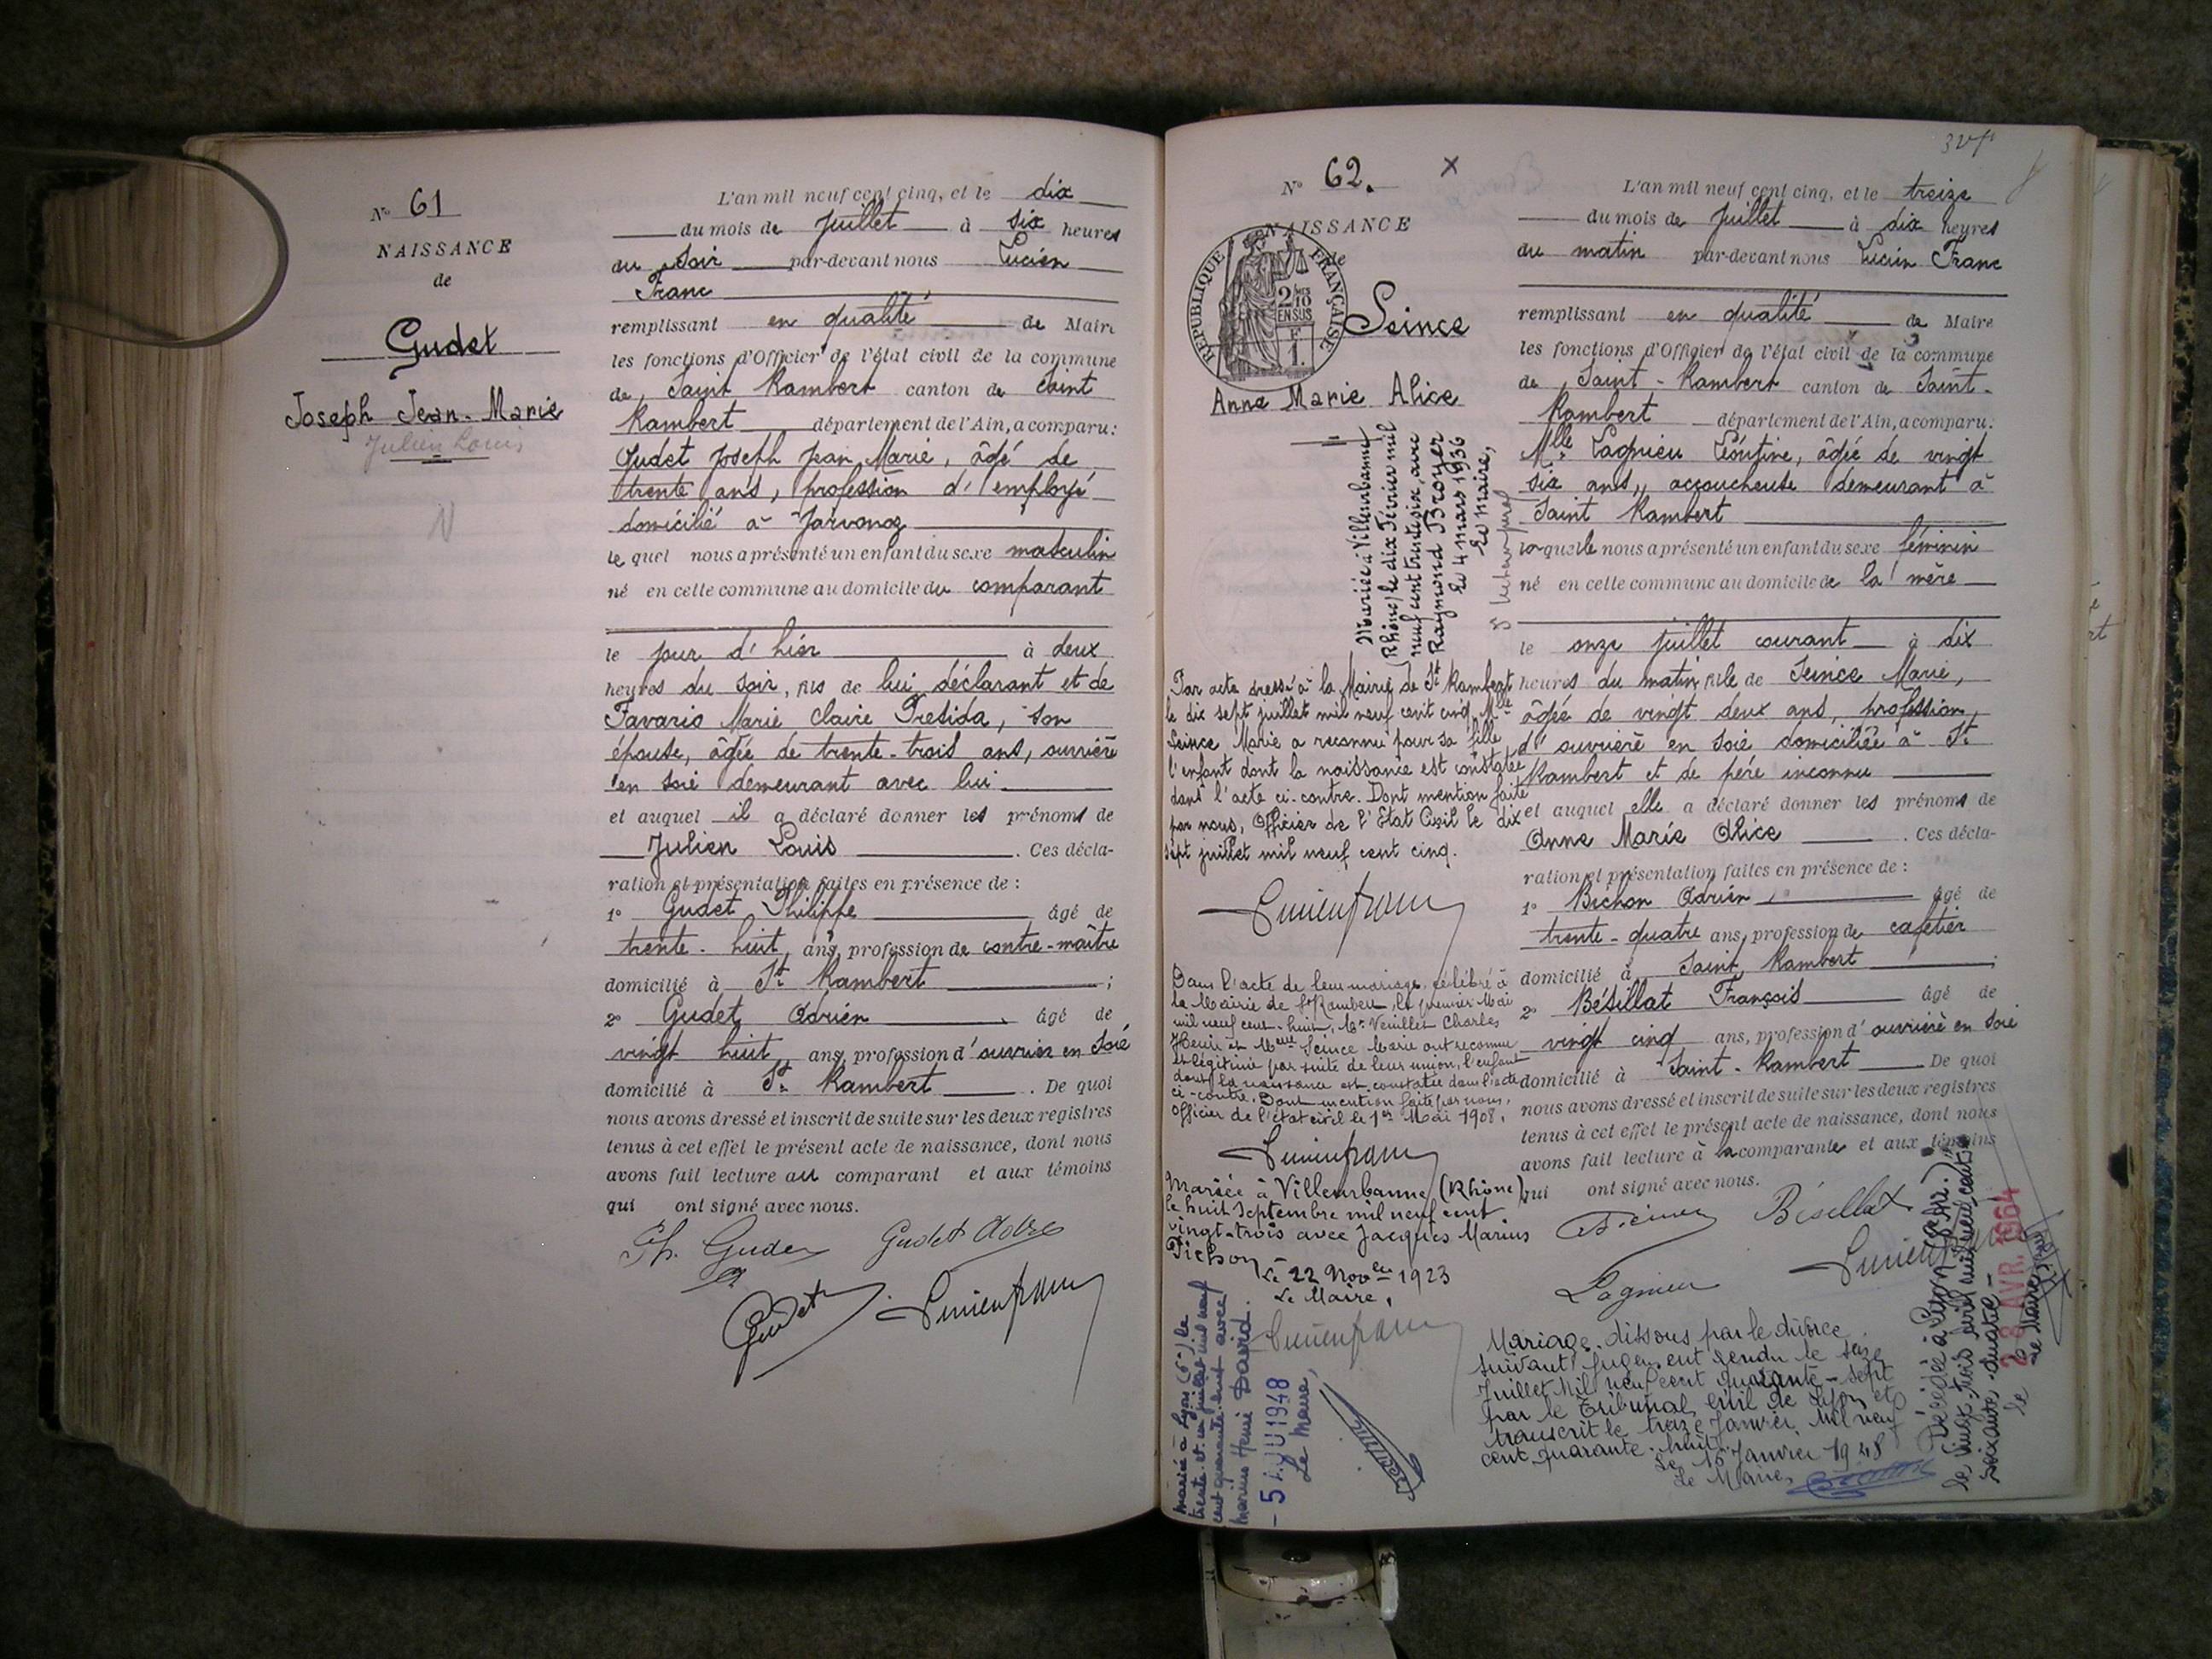 N° 61
NAISSANCE
de
Gudet
Joseph Jean-Marie
Julien Louis
N
L'an mil neuf cent cinq, et le dix
du mois de Juillet à six heures
du Soir par-devant nous Lucien
Franc
remplissant en qualité de Maire
les fonctions d'Officier de l'état civil de la commune
de Saint Rambert canton de Saint
Rambert département de l'Ain, a comparu:
Gudet Joseph Jean Marie, âgé de
trente ans, profession d'employé
domicilié à Javornoz
le quel nous a présenté un enfant du sexe masculin
né en cette commune au domicile du comparant
le jour d'hier à deux
heures du soir, fils de lui déclarant et de
Favario Marie Claire Presida, son
épouse, âgée de trente-trois ans, ouvrière
en soie demeurant avec lui
et auquel il a déclaré donner les prénoms de
Julien Louis. Ces décla-
ration et présentation faites en présence de :
1° Gudet Philippe âgé de
trente-huit ans, profession de contre-maître
domicilié à St Rambert ;
2° Gudet Adrien âgé de
vingt huit ans, profession d'ouvrier en Soie
domicilié à St Rambert. De quoi
nous avons dressé et inscrit de suite sur les deux registres
tenus à cet effet le présent acte de naissance, dont nous
avons fait lecture au comparant et aux témoins
qui ont signé avec nous.
Ph. Gudet Gudet Adre
Gudet Lucien franc
N° 62. x
NAISSANCE
de
REPUBLIQUE FRANÇAISE
2/10 EN SUS
F. 1.
Seince
Anne Marie Alice
Mariée à Villeurbanne
(Rhône) le dix Février mil
neuf cent trente six, avec
Raymond Broyer
Le 4 mars 1936
Le Maire,
Par acte dressé à la Mairie de St Rambert
le dix sept juillet mil neuf cent cinq Mlle
Seince Marie a reconnu pour sa fille
l'enfant dont la naissance est constatée
dans l'acte ci-contre. Dont mention faite
par nous, Officier de l'Etat Civil le dix
sept juillet mil neuf cent cinq.
Lucien franc
Dans l'acte de leur mariage, célébré à
la Mairie de St Rambert, le premier Mai
mil neuf cent-huit, Mr Venillet Charles
Henri et Melle Seince Marie ont reconnu
et légitimé par suite de leur union, l'enfant
dont la naissance est constatée dans l'acte
ci-contre. Dont mention faite par nous,
Officier de l'état civil le 1er Mai 1908.
Lucien franc
Mariée à Villeurbanne (Rhône)
le huit Septembre mil neuf cent
vingt-trois avec Jacques Marius
Pichon
Le 22 Novbre 1923
Le Maire,
Lucien franc
Mariée à Lyon (6e) le
trente et un juillet mil neuf
cent quarante huit avec
Marius Henri David.
- 5 AOU 1948
Le Maire,
L'an mil neuf cent cinq, et le treize
du mois de Juillet à dix heures
du matin par-devant nous Lucien Franc
remplissant en qualité de Maire
les fonctions d'Officier de l'état civil de la commune
de Saint-Rambert canton de Saint-
Rambert département de l'Ain, a comparu:
Mlle Lagnieu Léontine, âgée de vingt
six ans, accoucheuse demeurant à
Saint Rambert
laquelle nous a présenté un enfant du sexe féminin
né en cette commune au domicile de la mère
le onze juillet courant à dix
heures du matin, fille de Seince Marie,
âgée de vingt deux ans, profession
d'ouvrière en soie domiciliée à St
Rambert et de père inconnu
et auquel elle a déclaré donner les prénoms de
Anne Marie Alice. Ces décla-
ration et présentation faites en présence de :
1° Bichon Adrien, âgé de
trente-quatre ans, profession de cafetier
domicilié à Saint Rambert ;
2° Bésillat François âgé de
vingt cinq ans, profession d'ouvrière en soie
domicilié à Saint-Rambert De quoi
nous avons dressé et inscrit de suite sur les deux registres
tenus à cet effet le présent acte de naissance, dont nous
avons fait lecture à la comparante et aux témoins
qui ont signé avec nous.
Bésillat
Lagnieu Lucien franc
Mariage dissous par le divorce
suivant jugement rendu le seize
Juillet Mil neuf cent quarante-sept
par le Tribunal civil de Lyon et
transcrit le treize Janvier Mil neuf
cent quarante-huit.
Le 15 Janvier 1948
Le Maire,
Décédée à Lyon
le vingt-trois avril mil neuf cent
soixante-quatre-
le 28 AVR. 1964
Le Maire